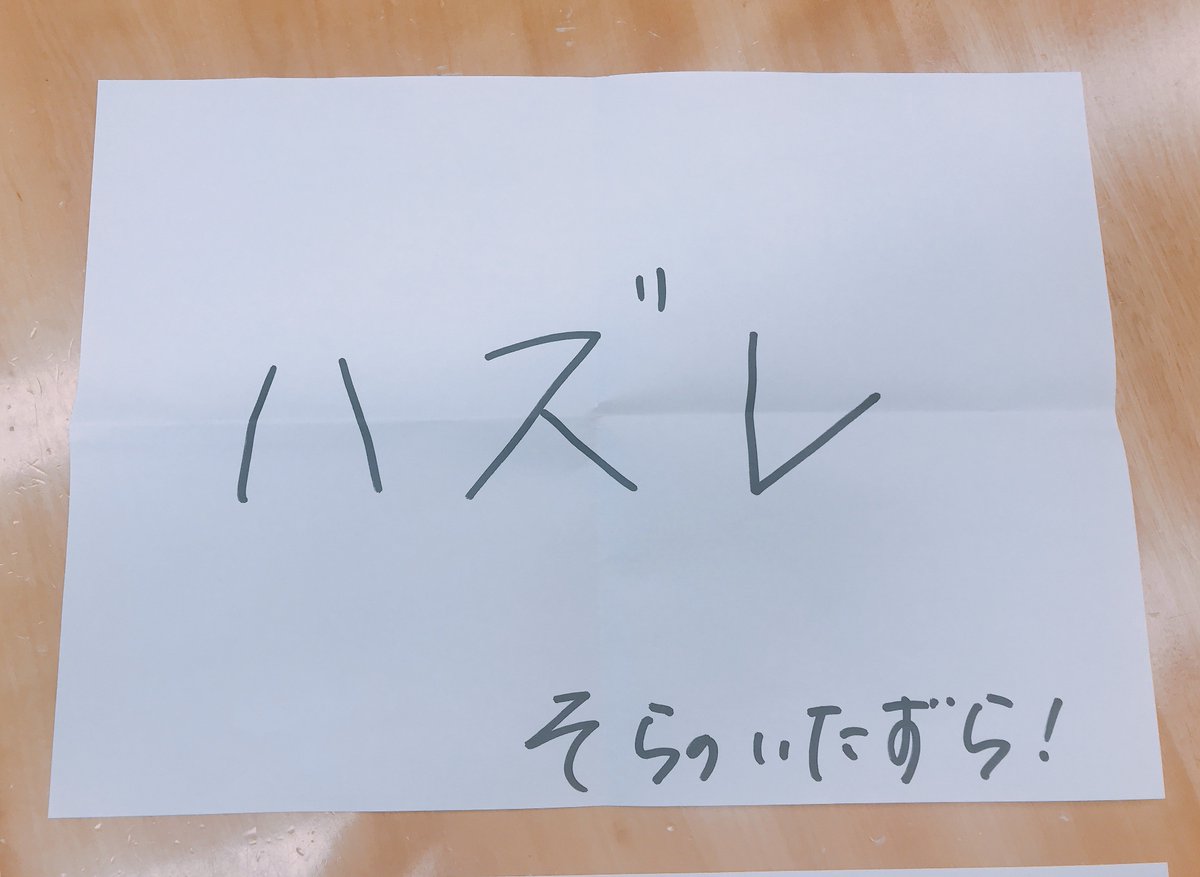 ハズレ
そらのいたずら!